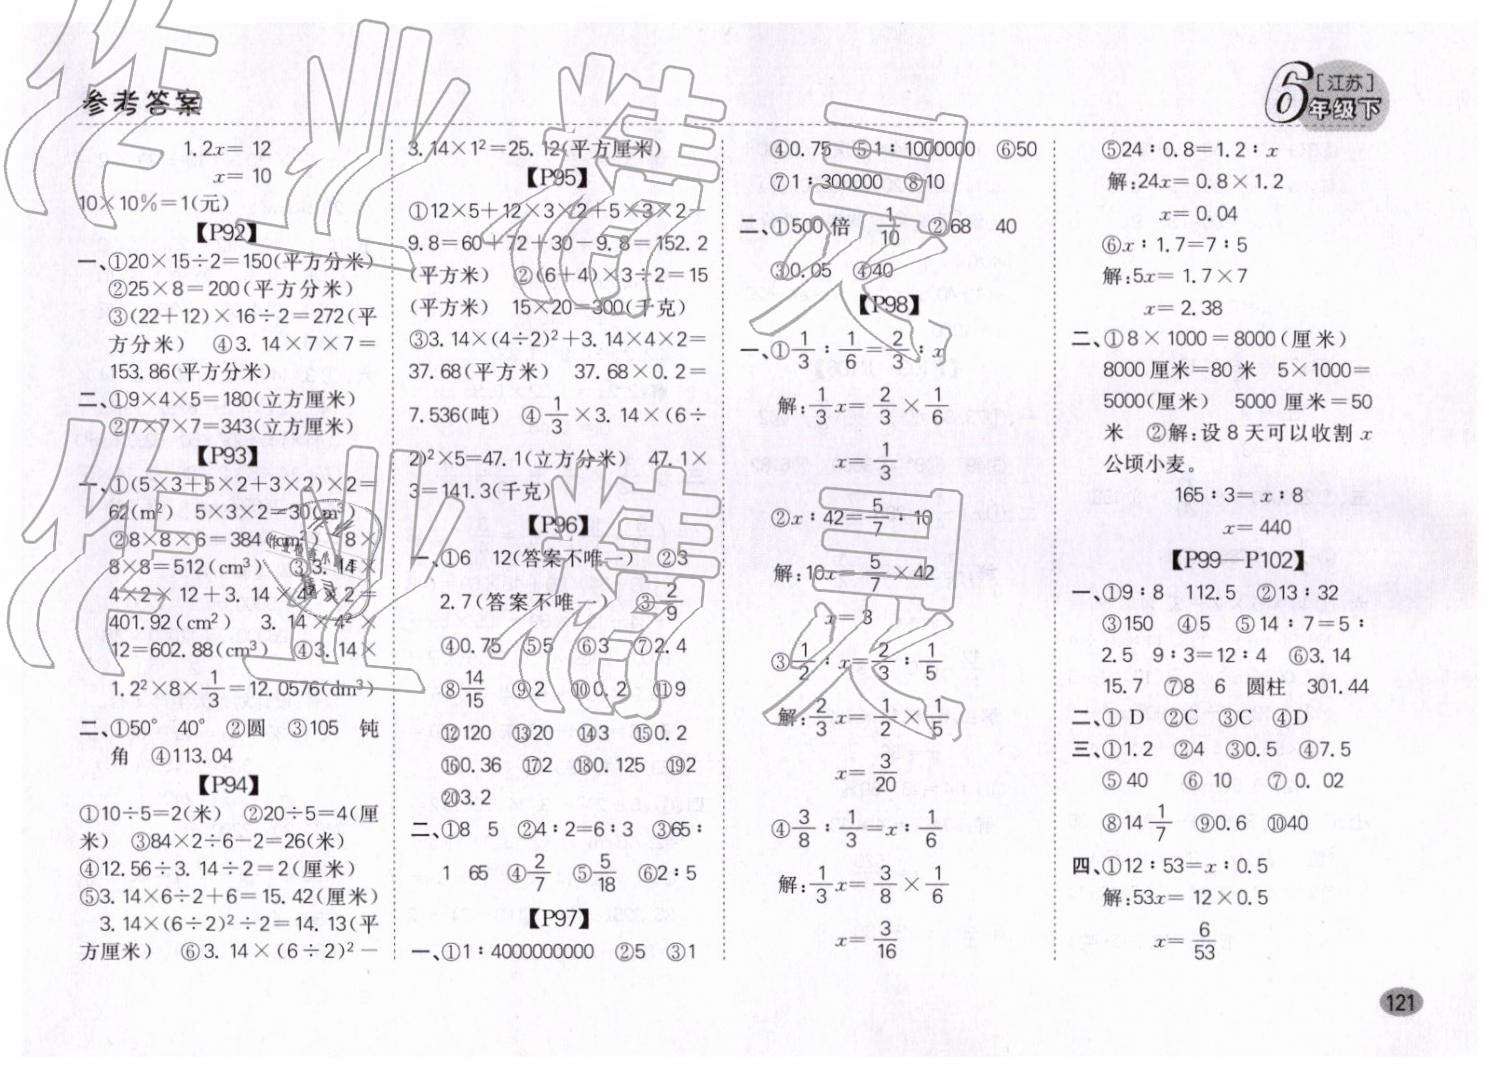 参考答案
6 [江苏] 年级下
1.2x= 12
x= 10
10×10%=1(元)
【P92】
一、①20×15÷2=150(平方分米)
②25×8=200(平方分米)
③(22+12)×16÷2=272(平
方分米) ④3.14×7×7=
153.86(平方分米)
二、①9×4×5=180(立方厘米)
②7×7×7=343(立方厘米)
【P93】
一、①(5×3+5×2+3×2)×2=
62(m²) 5×3×2=30(m³)
②8×8×6=384(cm²) 8×
8×8=512(cm³) ③3.14×
4×2×12+3.14×4²×2=
401.92(cm²) 3.14×4²×
12=602.88(cm³) ④3.14×
1.2²×8×1/3=12.0576(dm³)
二、①50° 40° ②圆 ③105 钝
角 ④113.04
【P94】
①10÷5=2(米) ②20÷5=4(厘
米) ③84×2÷6-2=26(米)
④12.56÷3.14÷2=2(厘米)
⑤3.14×6÷2+6=15.42(厘米)
3.14×(6÷2)²÷2=14.13(平
方厘米) ⑥3.14×(6÷2)²-
3.14×1²=25.12(平方厘米)
【P95】
①12×5+12×3×2+5×3×2-
9.8=60+72+30-9.8=152.2
(平方米) ②(6+4)×3÷2=15
(平方米) 15×20=300(千克)
③3.14×(4÷2)²+3.14×4×2=
37.68(平方米) 37.68×0.2=
7.536(吨) ④1/3×3.14×(6÷
2)²×5=47.1(立方分米) 47.1×
3=141.3(千克)
【P96】
一、①6 12(答案不唯一) ②3
2.7(答案不唯一) ③2/9
④0.75 ⑤5 ⑥3 ⑦2.4
⑧14/15 ⑨2 ⑩0.2 ⑪9
⑫120 ⑬20 ⑭3 ⑮0.2
⑯0.36 ⑰2 ⑱0.125 ⑲2
⑳3.2
二、①8 5 ②4∶2=6∶3 ③65∶
1 65 ④2/7 ⑤5/18 ⑥2∶5
【P97】
一、①1∶4000000000 ②5 ③1
④0.75 ⑤1∶1000000 ⑥50
⑦1∶300000 ⑧10
二、①500倍 1/10 ②68 40
③0.05 ④40
【P98】
一、①1/3∶1/6=2/3∶x
解:1/3x=2/3×1/6
x=1/3
②x∶42=5/7∶10
解:10x=5/7×42
x=3
③1/2∶x=2/3∶1/5
解:2/3x=1/2×1/5
x=3/20
④3/8∶1/3=x∶1/6
解:1/3x=3/8×1/6
x=3/16
⑤24∶0.8=1.2∶x
解:24x=0.8×1.2
x=0.04
⑥x∶1.7=7∶5
解:5x=1.7×7
x=2.38
二、①8×1000=8000(厘米)
8000厘米=80米 5×1000=
5000(厘米) 5000厘米=50
米 ②解:设8天可以收割x
公顷小麦。
165∶3=x∶8
x=440
【P99—P102】
一、①9∶8 112.5 ②13∶32
③150 ④5 ⑤14∶7=5∶
2.5 9∶3=12∶4 ⑥3.14
15.7 ⑦8 6 圆柱 301.44
二、①D ②C ③C ④D
三、①1.2 ②4 ③0.5 ④7.5
⑤40 ⑥10 ⑦0.02
⑧14 1/7 ⑨0.6 ⑩40
四、①12∶53=x∶0.5
解:53x=12×0.5
x=6/53
121
作业精灵
作业精灵